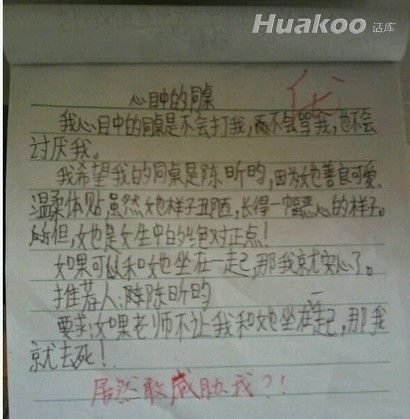 Huakoo 话库
心目中的同桌
优
我心目中的同桌是不会打我,不会骂我,也不会
讨厌我。
我希望我的同桌是陈昕昀,因为她善良可爱、
温柔体贴,虽然她样子丑陋,长得一幅恶心的样子。
但,她是女生中的绝对正点!
如果可以和她坐在一起,那我就安心了。
推荐人:陈昕昀
要求:如果老师不让我和她坐在一起,那我
就去死!
居然敢威胁我?!